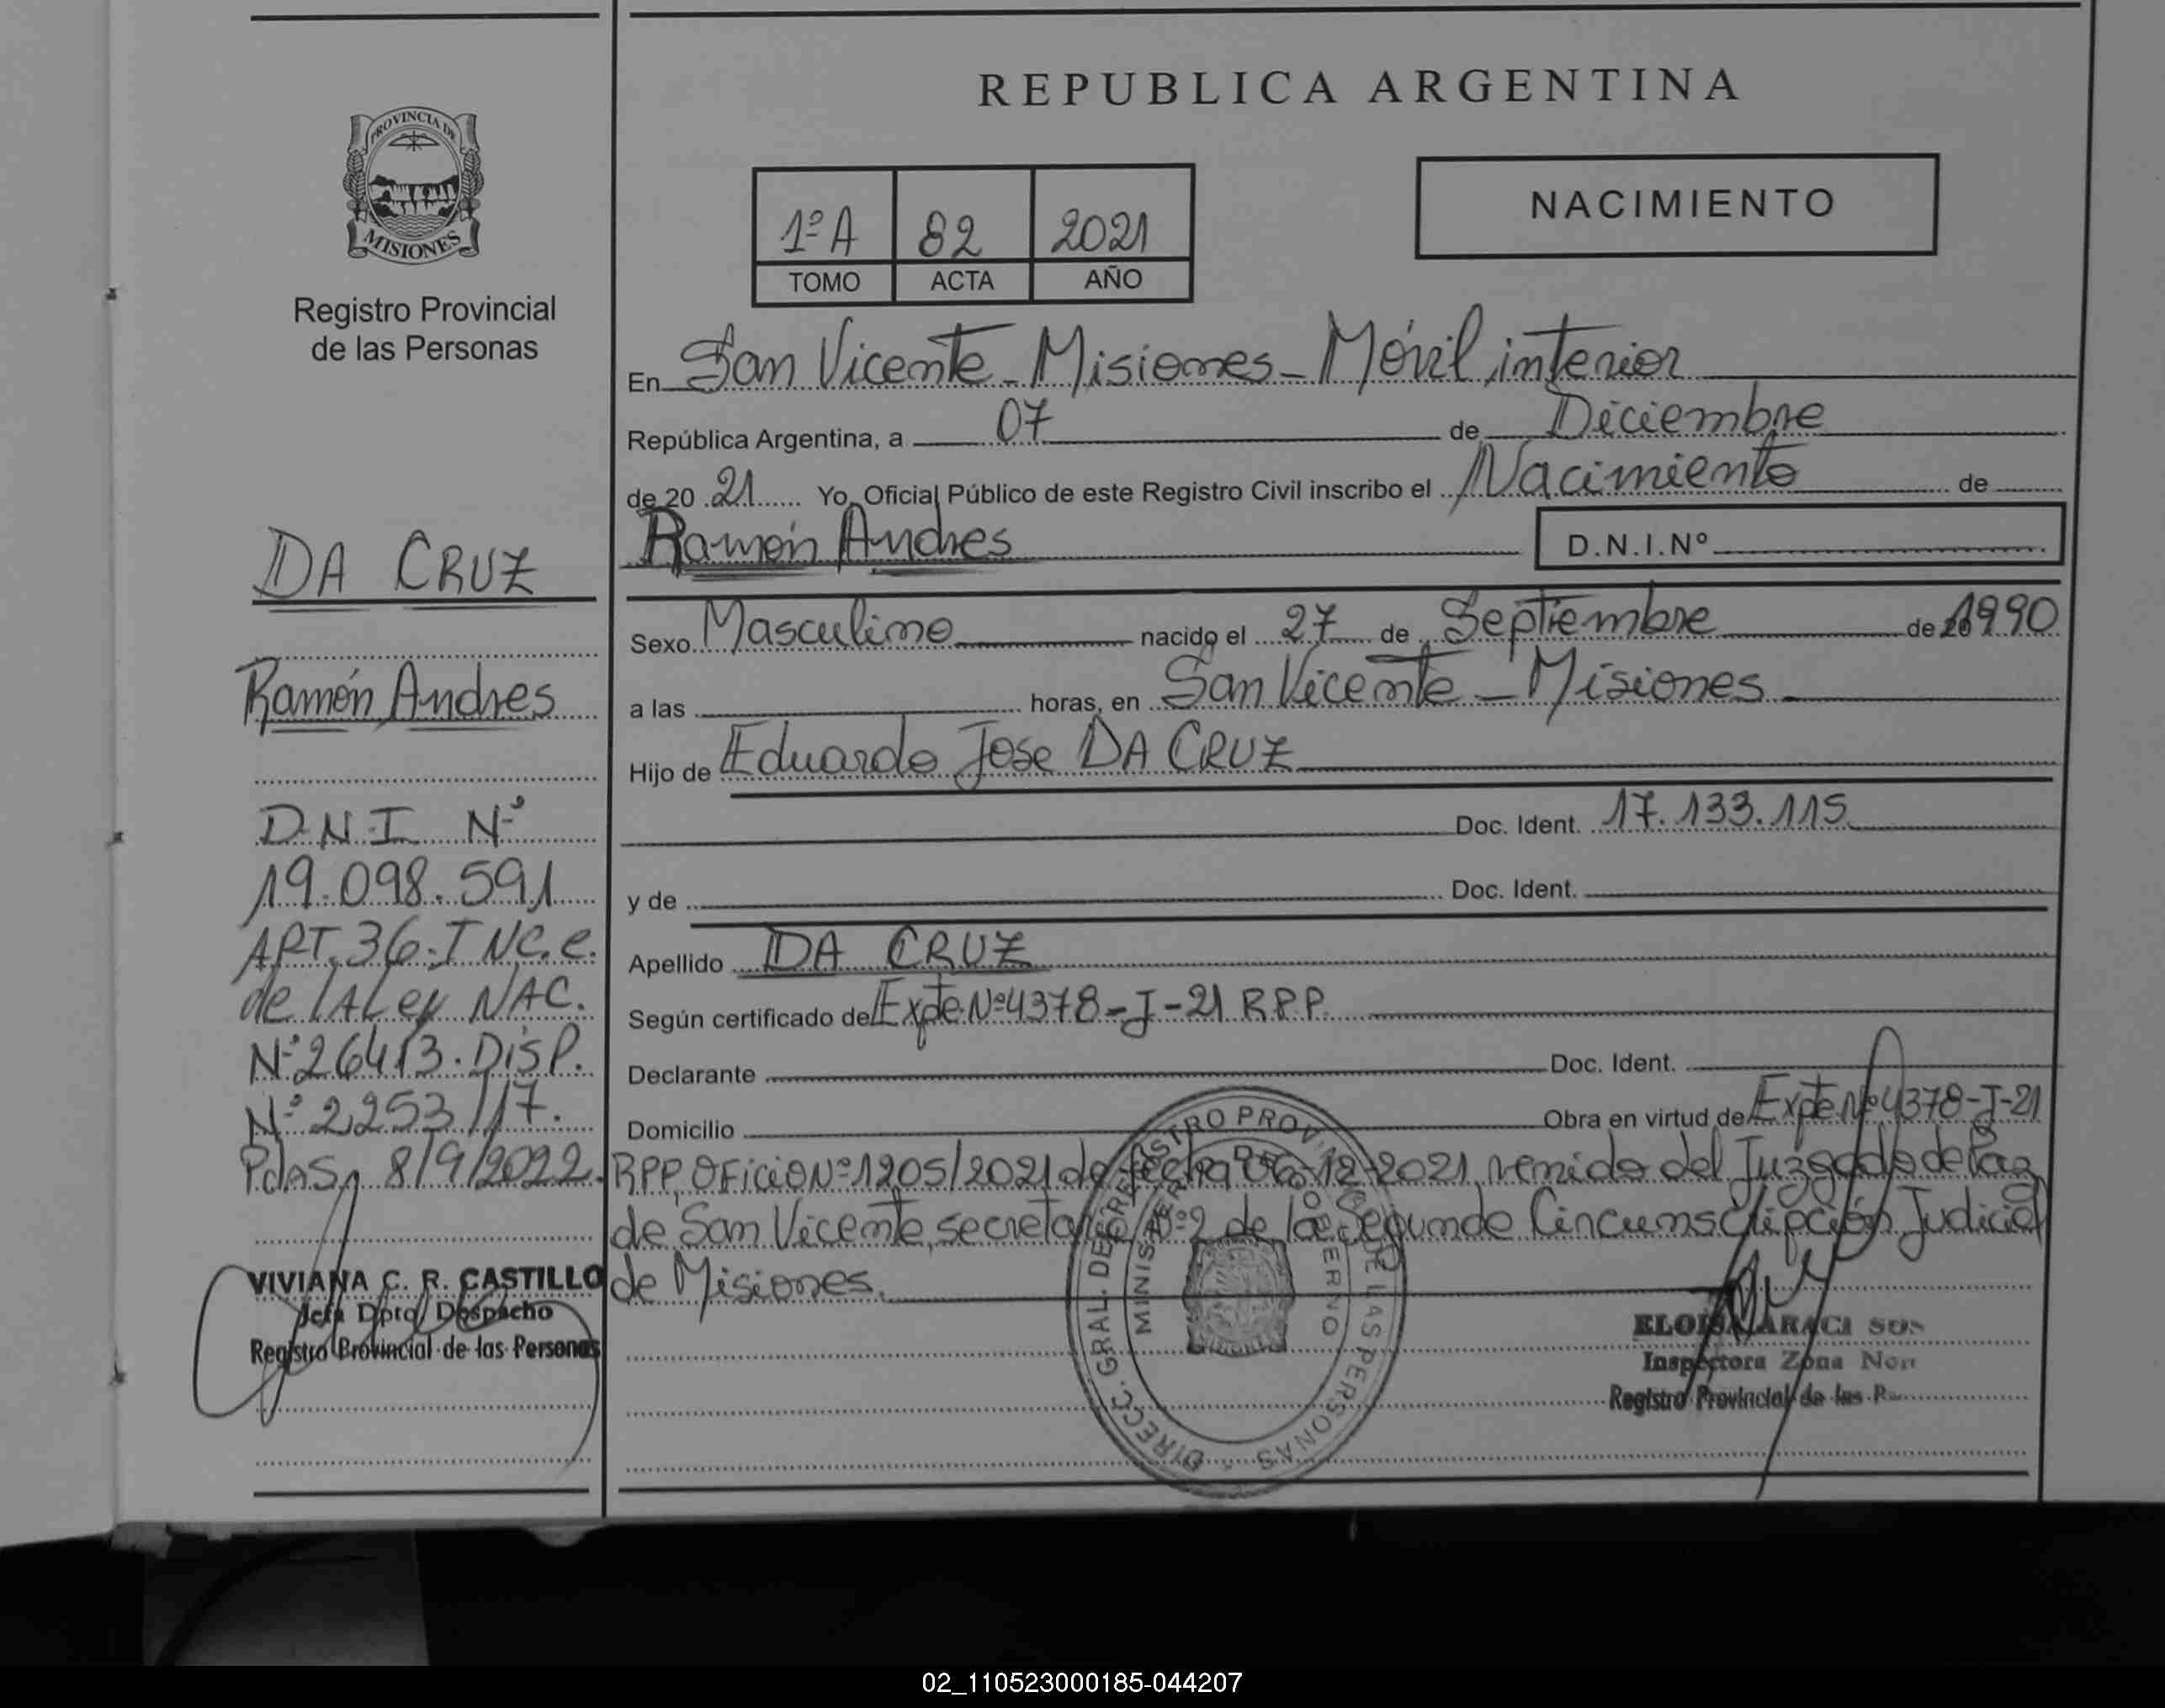 REPUBLICA ARGENTINA
PROVINCIA DE
MISIONES
Registro Provincial
de las Personas
1º A 82 2021
TOMO ACTA AÑO
NACIMIENTO
En San Vicente - Misiones - Móvil interior
República Argentina, a 07 de Diciembre
de 20 21 Yo, Oficial Público de este Registro Civil inscribo el Nacimiento de
Ramón Andres D.N.I.Nº
Sexo Masculino nacido el 27 de Septiembre de 1990
a las horas, en San Vicente - Misiones
Hijo de Eduardo Jose DA CRUZ
Doc. Ident. 17.133.115
y de Doc. Ident.
Apellido DA CRUZ
Según certificado de Expte Nº 4378-J-21 R.P.P.
Declarante Doc. Ident.
Domicilio Obra en virtud de Expte Nº 4378-J-21
RPP, OFicio Nº 1205/2021 de fecha 06-12-2021, remido del Juzgado de Paz
de San Vicente, secretaria Nº 2 de la Segunda Circunscripción Judicial
de Misiones.
DA CRUZ
Ramón Andres
D.N.I Nº
19.098.591
ART. 36. INC. e.
de LA Ley NAC.
Nº 26413. DISP.
Nº 2253/17.
Pdas, 8/9/2022.
VIVIANA C. R. CASTILLO
Jefa Dpto. Despacho
Registro Provincial de las Personas
DIRECC. GRAL. DEL REGISTRO PROVINCIAL DE LAS PERSONAS
MINISTERIO DE GOBIERNO
ELOISA ARACI
Inspectora Zona
Registro Provincial de las
02_110523000185-044207